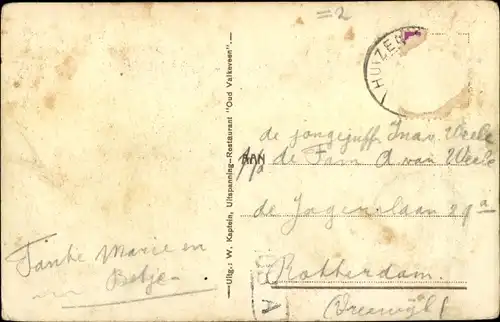 =2
HUIZEN
Uitg.: W. Kaptein, Uitspanning-Restaurant "Oud Valkeveen".—
AAN
de jongejuffr. Ina v. Weele
p/a de Fam A van Weele
de Jagerslaan 29a
Rotterdam
(Vreewijk)
Tante Marie en
Betje